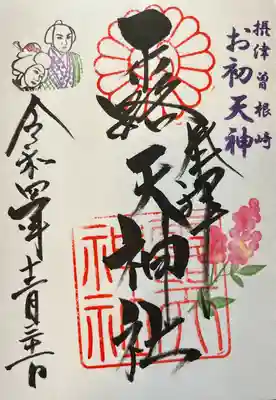 摂津曽根崎
お初天神
奉拝
露天神社
令和四年十二月二十一日